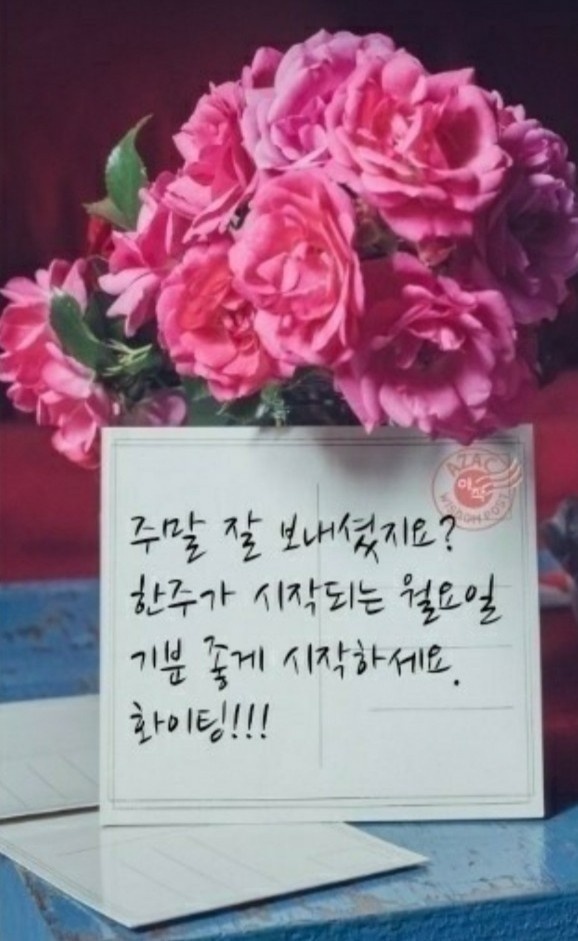 AZAC
아작
WISDOM POST
주말 잘 보내셨지요?
한주가 시작되는 월요일
기분 좋게 시작하세요.
화이팅!!!